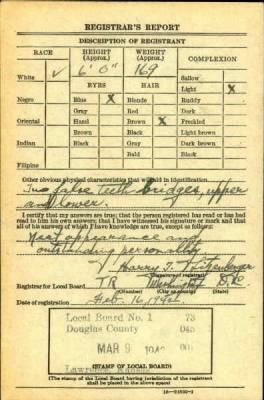 REGISTRAR'S REPORT
DESCRIPTION OF REGISTRANT
RACE HEIGHT (Approx.) WEIGHT (Approx.) COMPLEXION
White ✓ 6' 0" 169 Sallow
EYES HAIR Light X
Negro Blue X Blonde Ruddy
Gray Red Dark
Oriental Hazel Brown X Freckled
Brown Black Light brown
Indian Black Gray Dark brown
Bald Black
Filipino
Other obvious physical characteristics that will aid in identification
Two false teeth bridges, upper
and lower.
I certify that my answers are true; that the person registered has read or has had
read to him his own answers; that I have witnessed his signature or mark and that
all of his answers of which I have knowledge are true, except as follows:
Neat appearance and
outstanding personality
Harry T.
Registrar for Local Board
(Number) (City or county) (State)
Date of registration Feb. 16, 1942
Local Board No. 1 73
Douglas County 045
MAR 9 1942 001
Lawrence, Kansas
(STAMP OF LOCAL BOARD)
(The stamp of the Local Board having jurisdiction of the registrant
shall be placed in the above space)